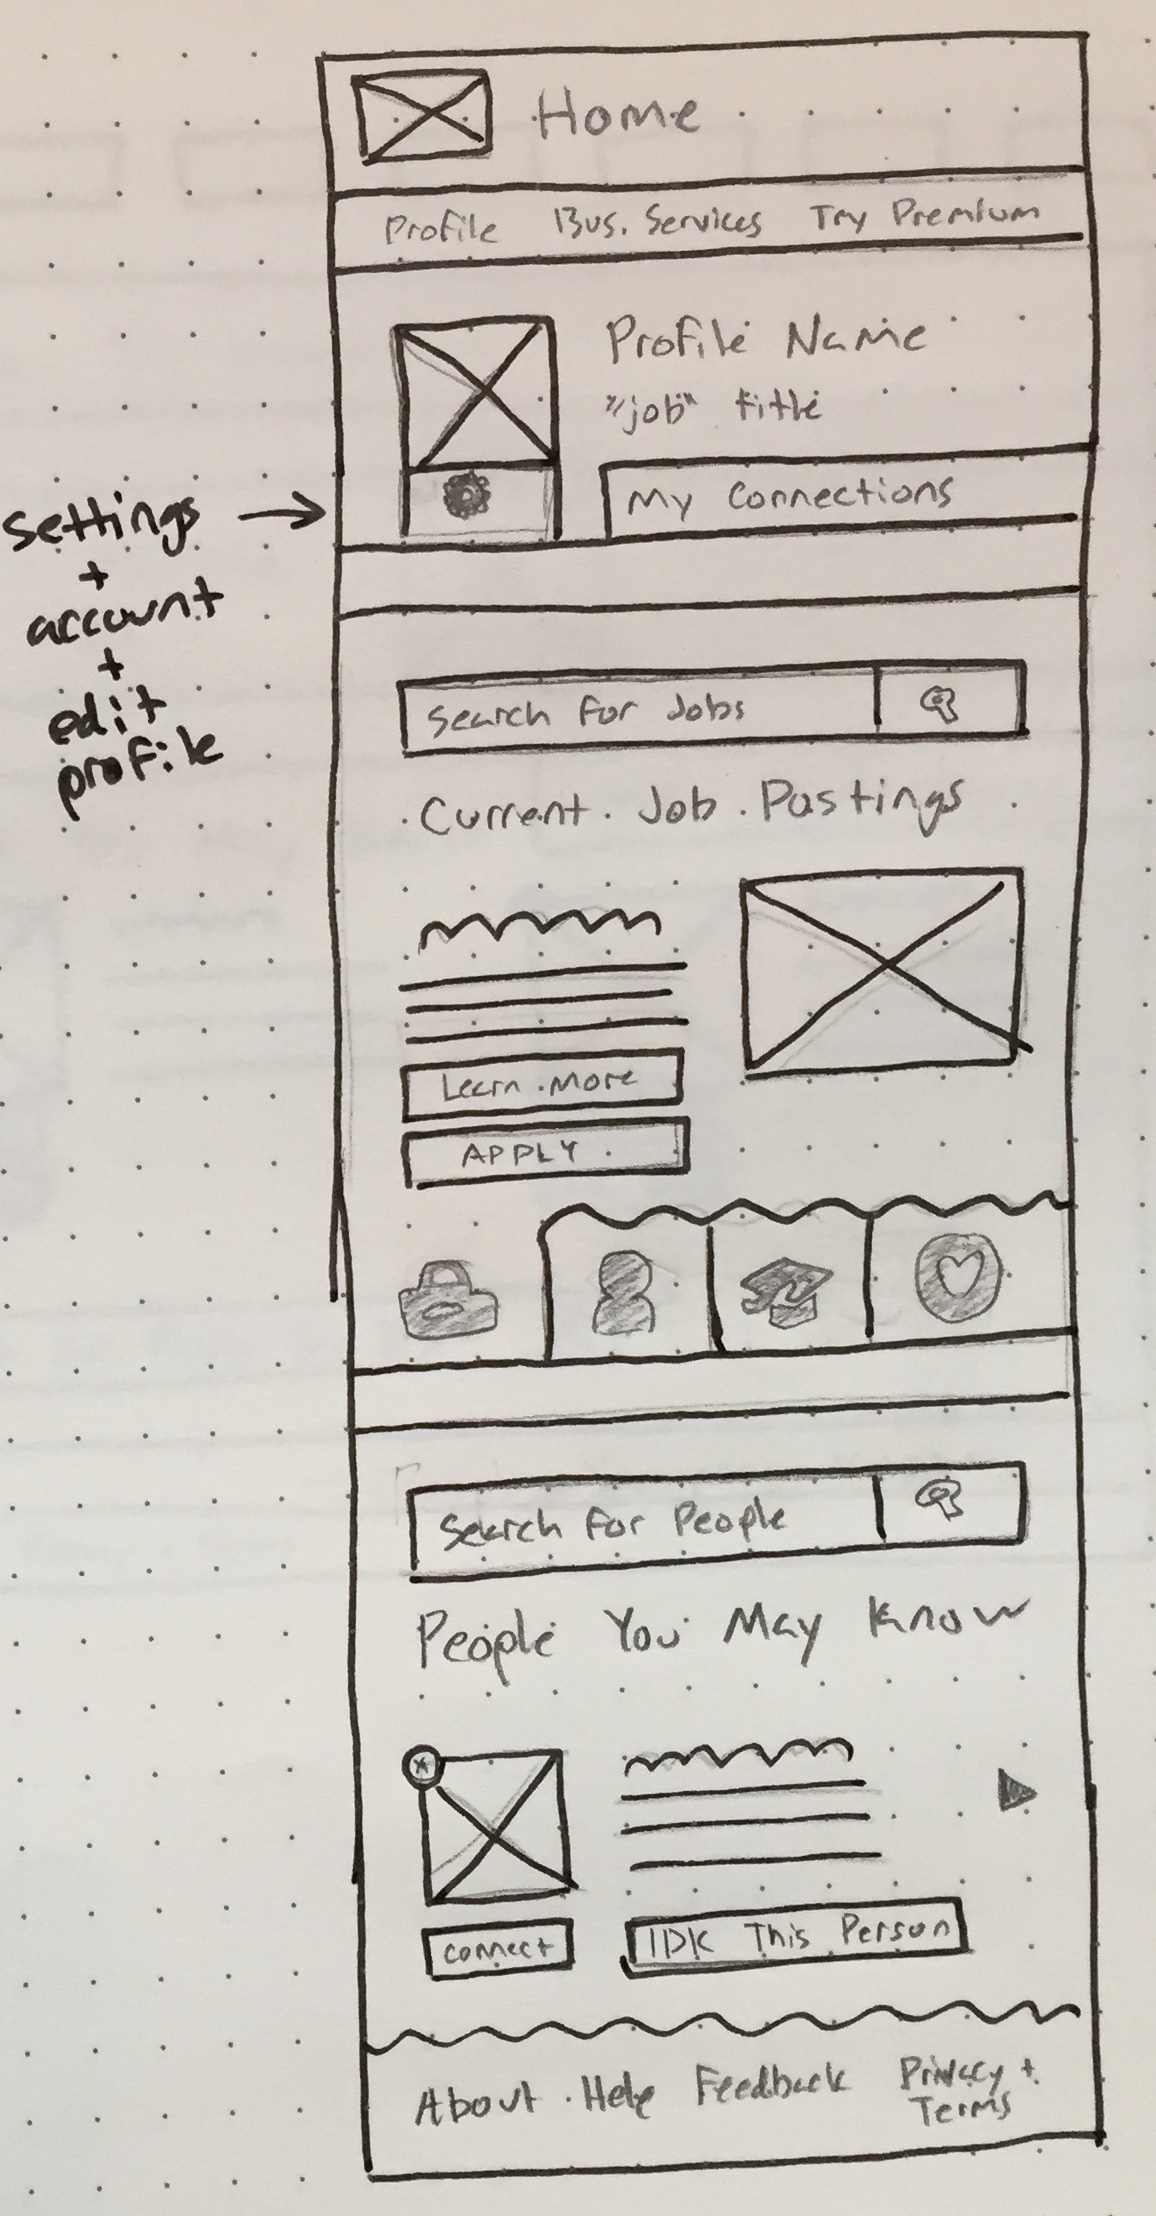 Home
Profile Bus. Services Try Premium
Profile Name
"job" title
My Connections
settings
+
account
+
edit
profile
Search For Jobs
Current Job Postings
Learn More
APPLY
Search For People
People You May Know
x
connect
IDK This Person
About Help Feedback Privacy +
Terms